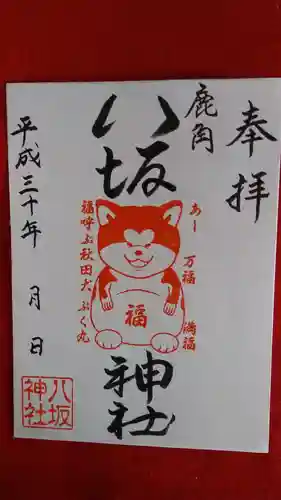 奉拝
鹿角
八坂神社
あー
万福
満福
福
福呼ぶ秋田犬ぷく丸
平成三十年 月 日
八坂
神社